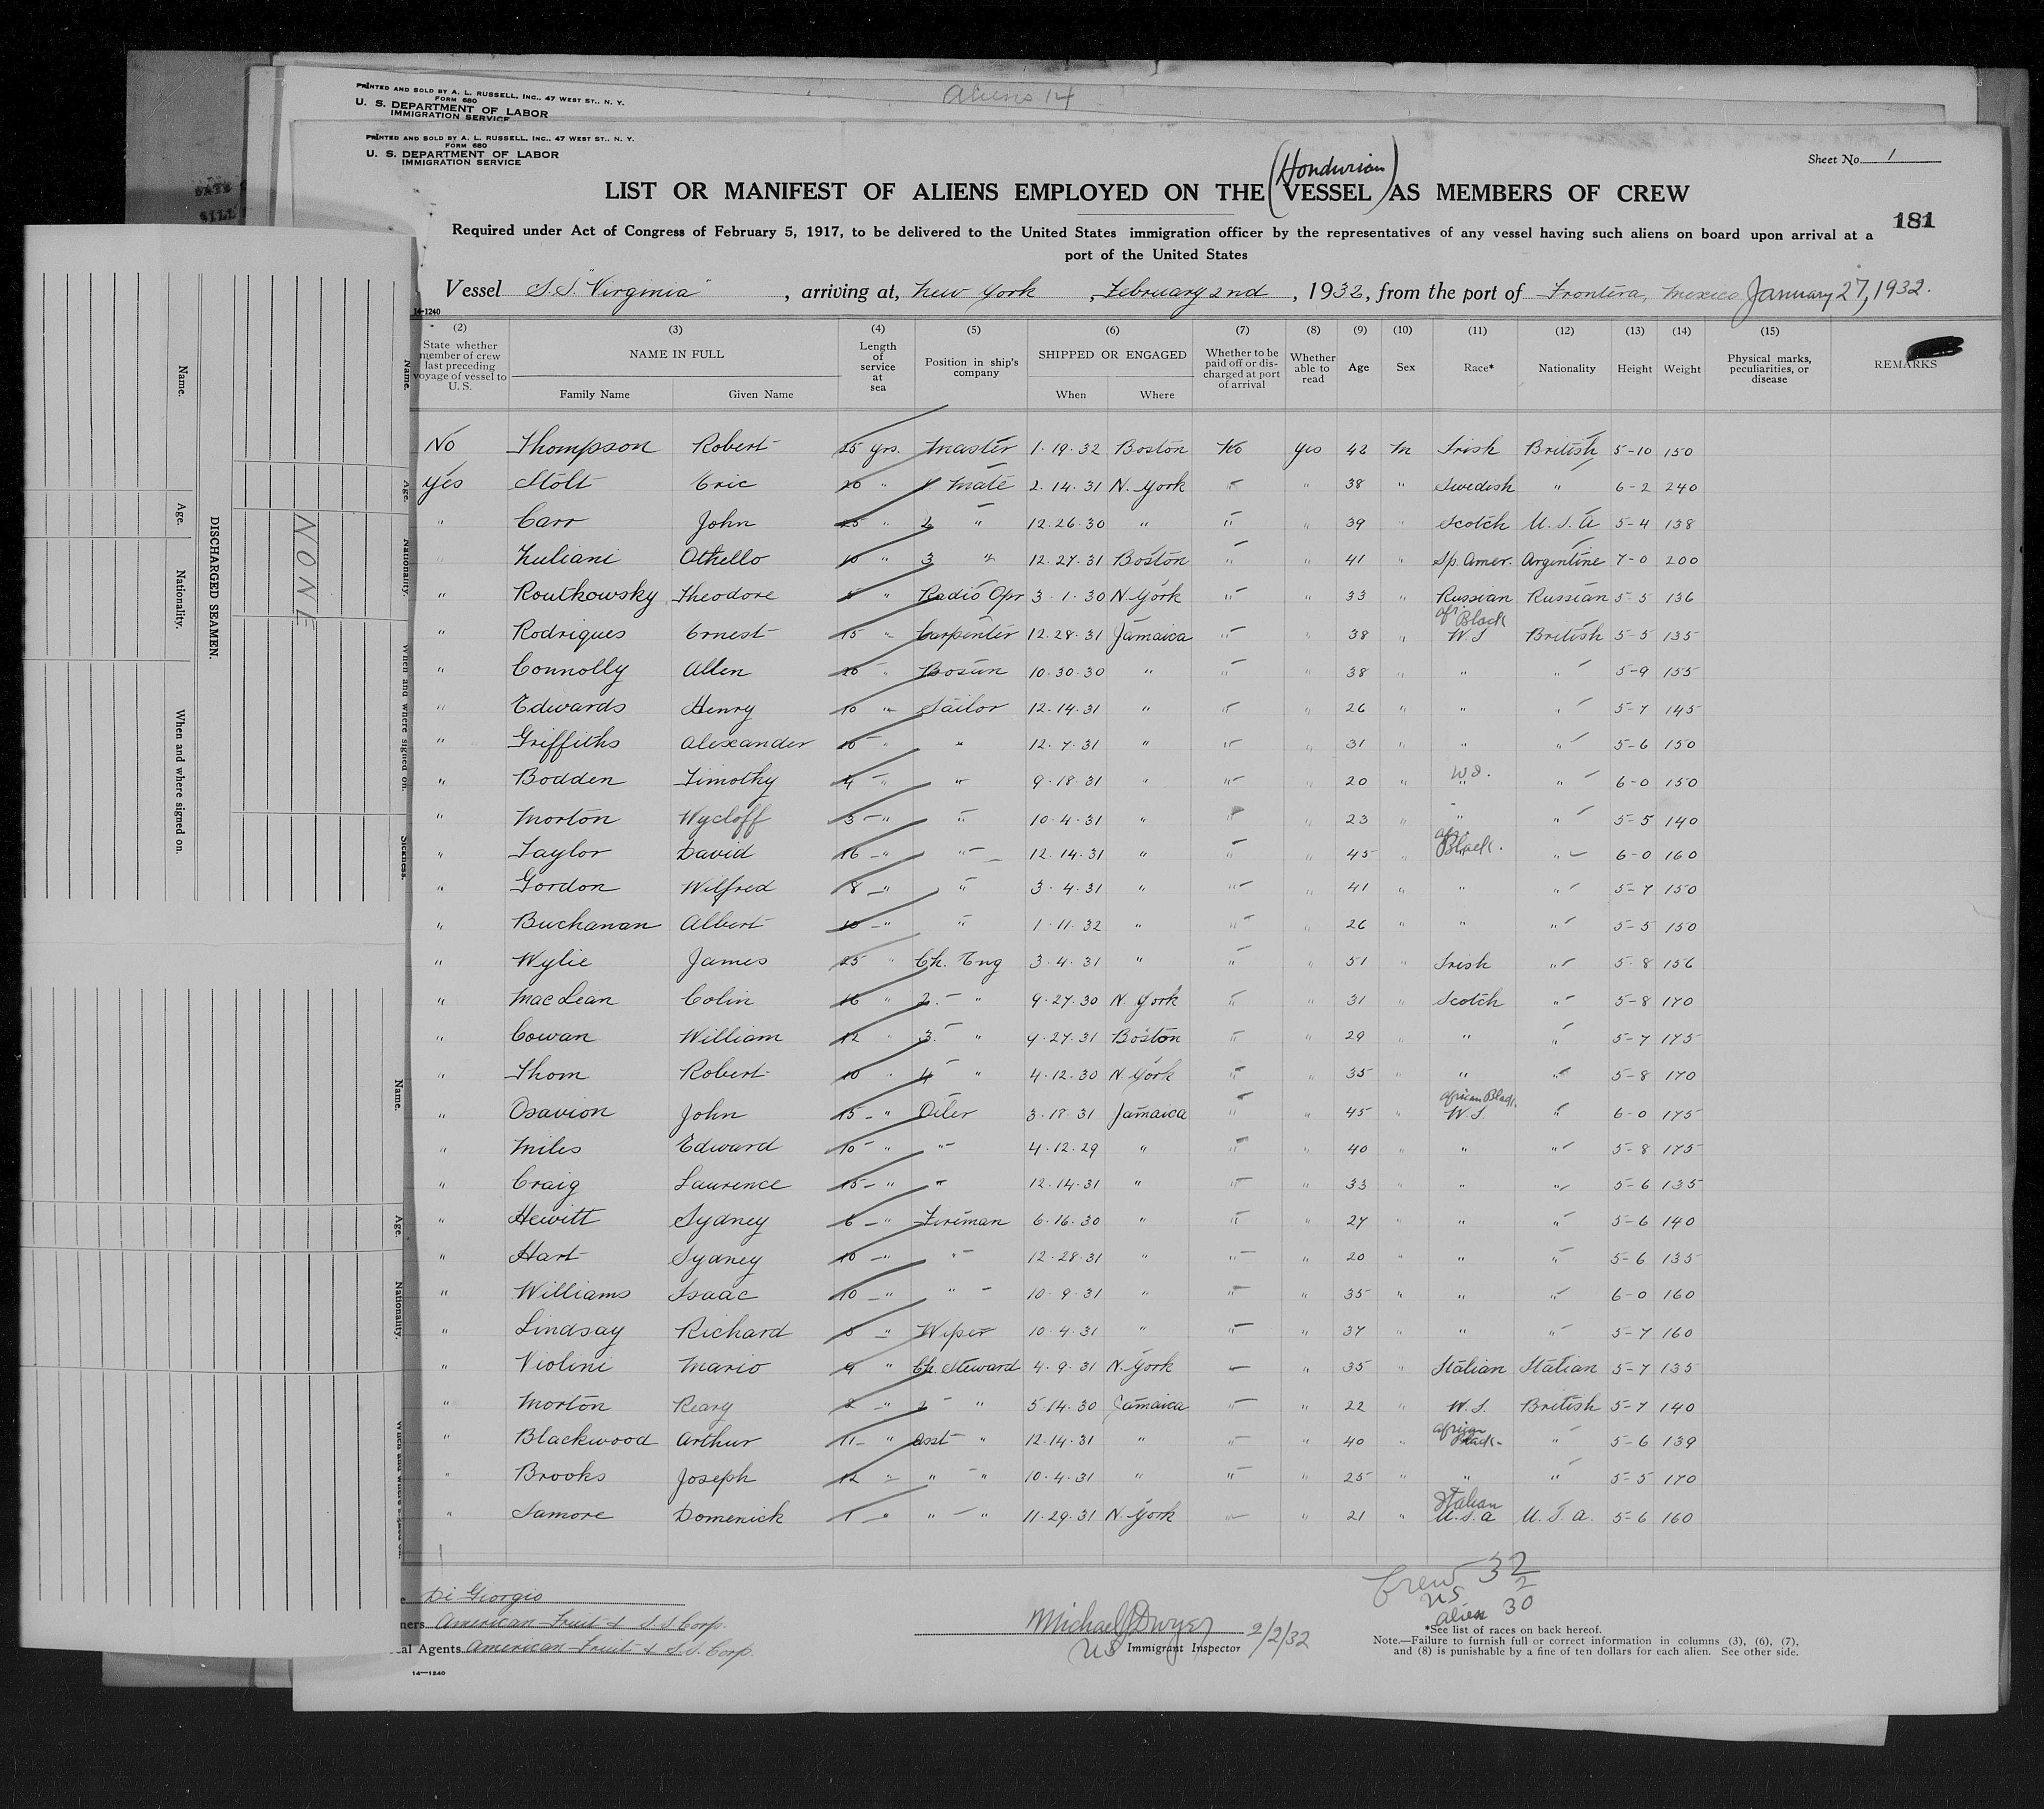 Aliens 14
PRINTED AND SOLD BY A. L. RUSSELL, INC., 47 WEST ST., N. Y.
FORM 680
U. S. DEPARTMENT OF LABOR
IMMIGRATION SERVICE
PRINTED AND SOLD BY A. L. RUSSELL, INC., 47 WEST ST., N. Y.
FORM 680
U. S. DEPARTMENT OF LABOR
IMMIGRATION SERVICE
Sheet No. 1
(Hondurian)
LIST OR MANIFEST OF ALIENS EMPLOYED ON THE VESSEL AS MEMBERS OF CREW
181
Required under Act of Congress of February 5, 1917, to be delivered to the United States immigration officer by the representatives of any vessel having such aliens on board upon arrival at a
port of the United States
Vessel S.S. "Virginia", arriving at, New York, February 2nd, 1932, from the port of Frontera, Mexico January 27, 1932.
14-1240
(2) (3) (4) (5) (6) (7) (8) (9) (10) (11) (12) (13) (14) (15)
State whether member of crew last preceding voyage of vessel to U. S.
NAME IN FULL
Family Name Given Name
Length of service at sea
Position in ship's company
SHIPPED OR ENGAGED
When Where
Whether to be paid off or discharged at port of arrival
Whether able to read
Age Sex Race* Nationality Height Weight
Physical marks, peculiarities, or disease
REMARKS
No Thompson Robert 25 yrs. Master 1-19-32 Boston No Yes 42 M Irish British 5-10 150
Yes Stolt Eric 20 " 1 Mate 2-14-31 N. York " " 38 " Swedish " 6-2 240
" Carr John 25 " 2 " 12-26-30 " " " 39 " Scotch U.S.A 5-4 138
" Zuliani Othello 10 " 3 " 12-27-31 Boston " " 41 " Sp. Amer. Argentine 7-0 200
" Routkowsky Theodore " Radio Opr 3-1-30 N. York " " 33 " Russian Russian 5-5 136
afr. Black
" Rodriques Ernest 15 " Carpenter 12-28-31 Jamaica " " 38 " W.I British 5-5 135
" Connolly Allen 20 " Bosun 10-30-30 " " " 38 " " " 5-9 155
" Edwards Henry 10 " Sailor 12-14-31 " " " 26 " " " 5-7 145
" Griffiths Alexander 10 " " 12-7-31 " " " 31 " " " 5-6 150
W.I.
" Bodden Timothy 4 " " 9-18-31 " " " 20 " " " 6-0 150
" Morton Wycloff 3 " " 10-4-31 " " " 23 " " " 5-5 140
afr. Black.
" Taylor David 16 " " 12-14-31 " " " 45 " " " 6-0 160
" Gordon Wilfred 8 " " 3-4-31 " " " 41 " " " 5-7 150
" Buchanan Albert 10 " " 1-11-32 " " " 26 " " " 5-5 150
" Wylie James 25 " Ch. Eng 3-4-31 " " " 51 Irish " 5-8 156
" MacLean Colin 16 " 2. " 9-27-30 N. York " " 31 Scotch " 5-8 170
" Cowan William 12 " 3. " 9-27-31 Boston " " 29 " " 5-7 175
" Thom Robert 10 " 4 " 4-12-30 N. York " " 35 " " " 5-8 170
African Black.
" Osavion John 15 " Oiler 3-18-31 Jamaica " " 45 " W.I. " 6-0 175
" Miles Edward 10 " " 4-12-29 " " " 40 " " " 5-8 175
" Craig Laurence 15 " " 12-14-31 " " " 33 " " " 5-6 135
" Hewitt Sydney 6 " Fireman 6-16-30 " " " 27 " " " 5-6 140
" Hart Sydney 10 " " 12-28-31 " " " 20 " " " 5-6 135
" Williams Isaac 10 " " 10-9-31 " " " 35 " " " 6-0 160
" Lindsay Richard " Wiper 10-4-31 " " " 37 " " " 5-7 160
" Violini Mario 9 " Ch. Steward 4-9-31 N. York " 35 " Italian Italian 5-7 135
" Morton Reary 2 " 2 " 5-14-30 Jamaica " " 22 " W.I. British 5-7 140
" Blackwood Arthur 11 " Asst " 12-14-31 " " " 40 " African Black " 5-6 139
" Brooks Joseph 12 " " " 10-4-31 " " " 25 " " " 5-5 170
Italian
" Samore Domenick 1 " " " 11-29-31 N. York " " 21 " U.S.A U.S.A. 5-6 160
Crew 32
US 2
Alien 30
Di Giorgio
ners American Fruit & S.S Corp.
al Agents American Fruit & S.S. Corp.
14—1240
Michael J Dwyer 2/2/32
US Immigrant Inspector
*See list of races on back hereof.
Note.—Failure to furnish full or correct information in columns (3), (6), (7),
and (8) is punishable by a fine of ten dollars for each alien. See other side.
DISCHARGED SEAMEN.
NONE
Name. Age. Nationality. When and where signed on.
Name. Age. Nationality. When and where signed on. Sickness.
Name. Age. Nationality.